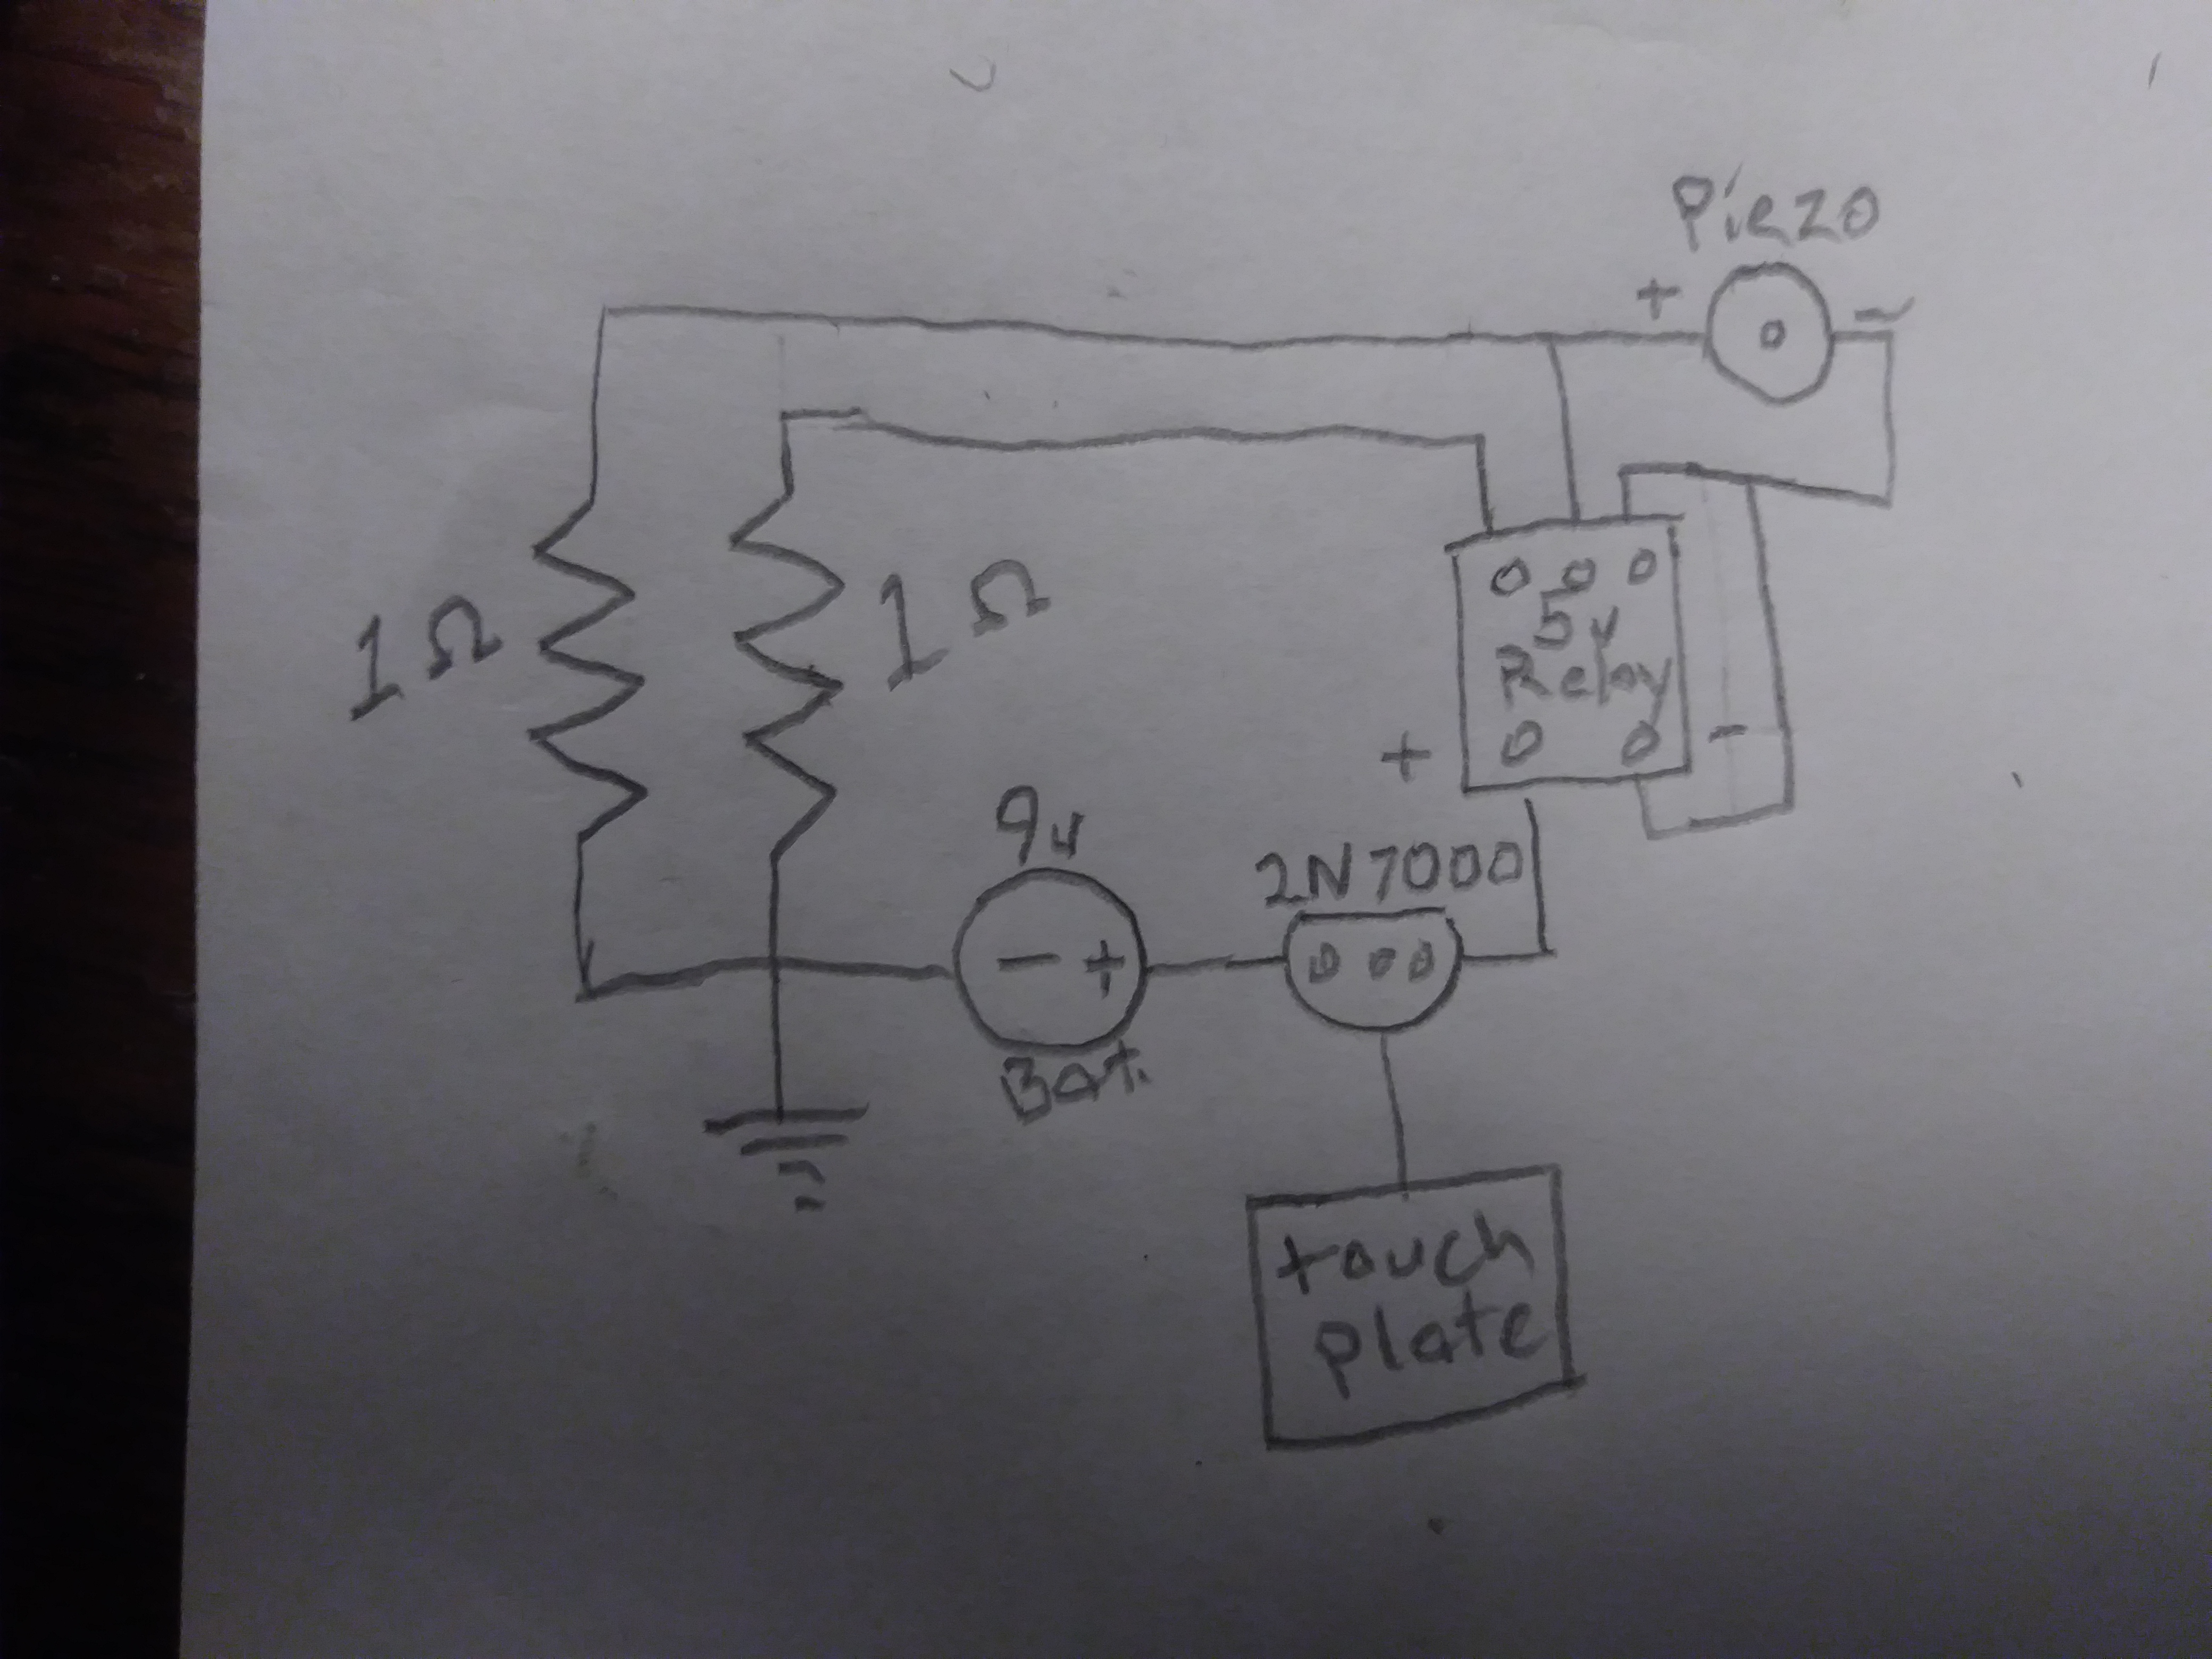 Piezo
+ -
1Ω
1Ω
5v
Relay
+ -
9v
- +
Bat.
2N7000
touch
plate